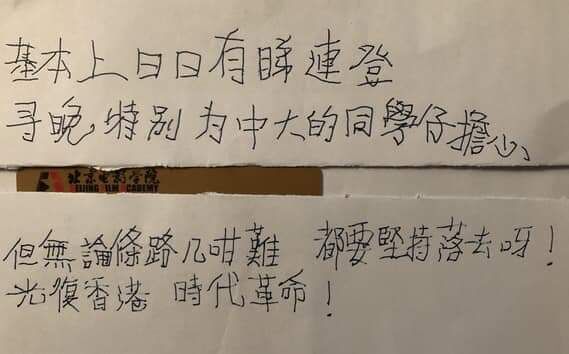 基本上日日有睇連登
寻晚特别为中大的同學仔擔心
北京电影学院
BEIJING FILM ACADEMY
但無論條路几咁難 都要堅持落去呀！
光復香港 時代革命！